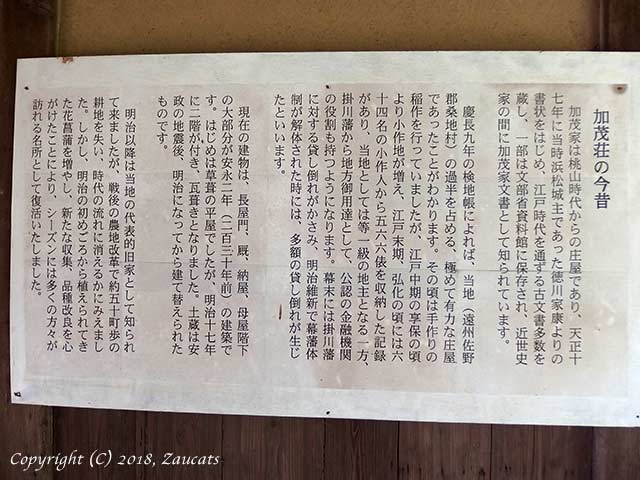 加茂荘の今昔
加茂家は桃山時代からの庄屋であり、天正十
七年に当時浜松城主であった徳川家康よりの
書状をはじめ、江戸時代を通ずる古文書多数を
蔵し、一部は文部省資料館に保存され、近世史
家の間に加茂家文書として知られています。
慶長九年の検地帳によれば、当地（遠州佐野
郡桑地村）の過半を占める、極めて有力な庄屋
であったことがわかります。その頃は手作りの
稲作を行っていましたが、江戸中期の享保の頃
より小作地が増え、江戸末期、弘化の頃には六
十四名の小作人から五六六俵を収納した記録
があり、当地としては等一級の地主となる一方、
掛川藩から地方御用達として、公認の金融機関
の役割も持つようになります。幕末には掛川藩
に対する貸し倒れがかさみ、明治維新で幕藩体
制が解体された時には、多額の貸し倒れが生じ
たといいます。
現在の建物は、長屋門、厩、納屋、母屋階下
の大部分が安永二年（二百三十年前）の建築で
す。はじめは草葺の平屋でしたが、明治十七年
に二階が付き、瓦葺きとなりました。土蔵は安
政の地震後、明治になってから建て替えられた
ものです。
明治以降は当地の代表的旧家として知られ
て来ましたが、戦後の農地改革で約五十町歩の
耕地を失い、時代の流れに消えるかにみえまし
た。しかし、明治の初めごろから植えられてき
た花菖蒲を増やし、新たな収集、品種改良を心
がけたことにより、シーズンには多くの方々が
訪れる名所として復活いたしました。
Copyright (C) 2018, Zaucats